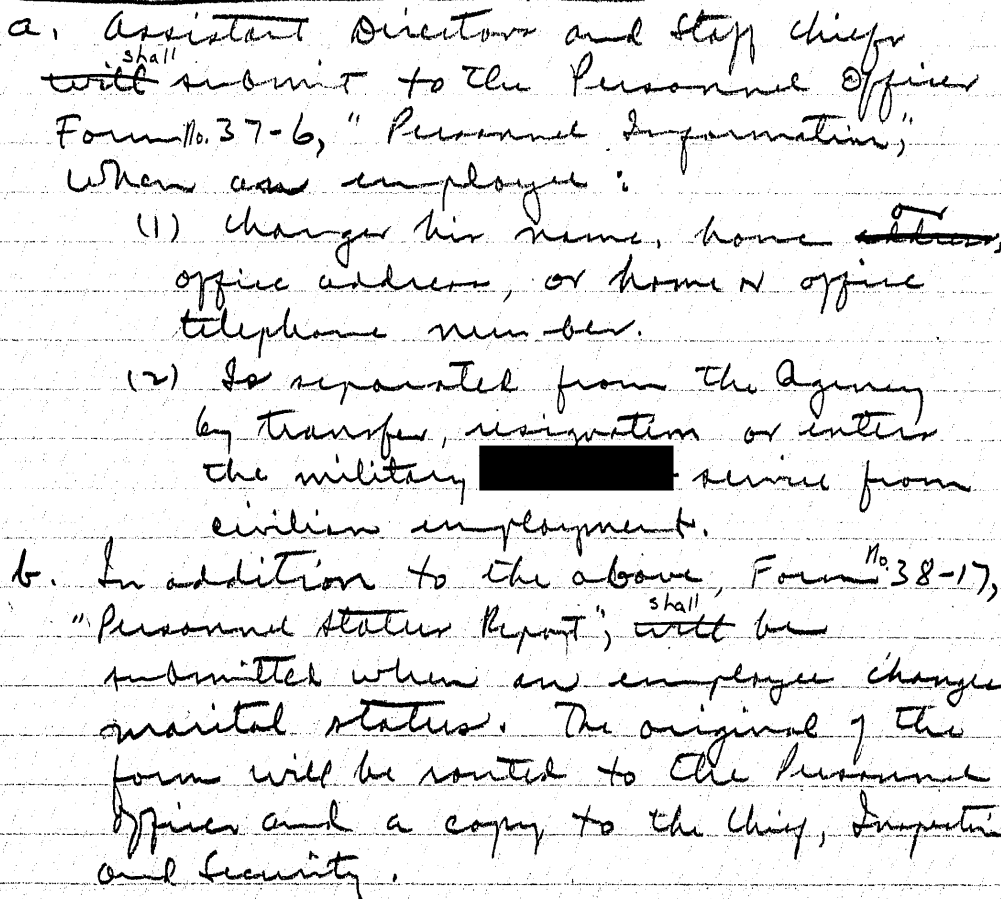 a. Assistant Directors and Staff Chiefs
shall
~~will~~ submit to the Personnel Officer
Form No. 37-6, "Personnel Information,"
when an employee:
or
(1) Changes his name, home ~~address,~~
office address, or home or office
telephone number.
(2) Is separated from the Agency
by transfer, resignation or enters
the military service from
civilian employment.
b. In addition to the above, Form No. 38-17,
shall
"Personnel Status Report", ~~will~~ be
submitted when an employee changes
marital status. The original of the
form will be routed to the Personnel
Officer and a copy to the Chief, Inspection
and Security.